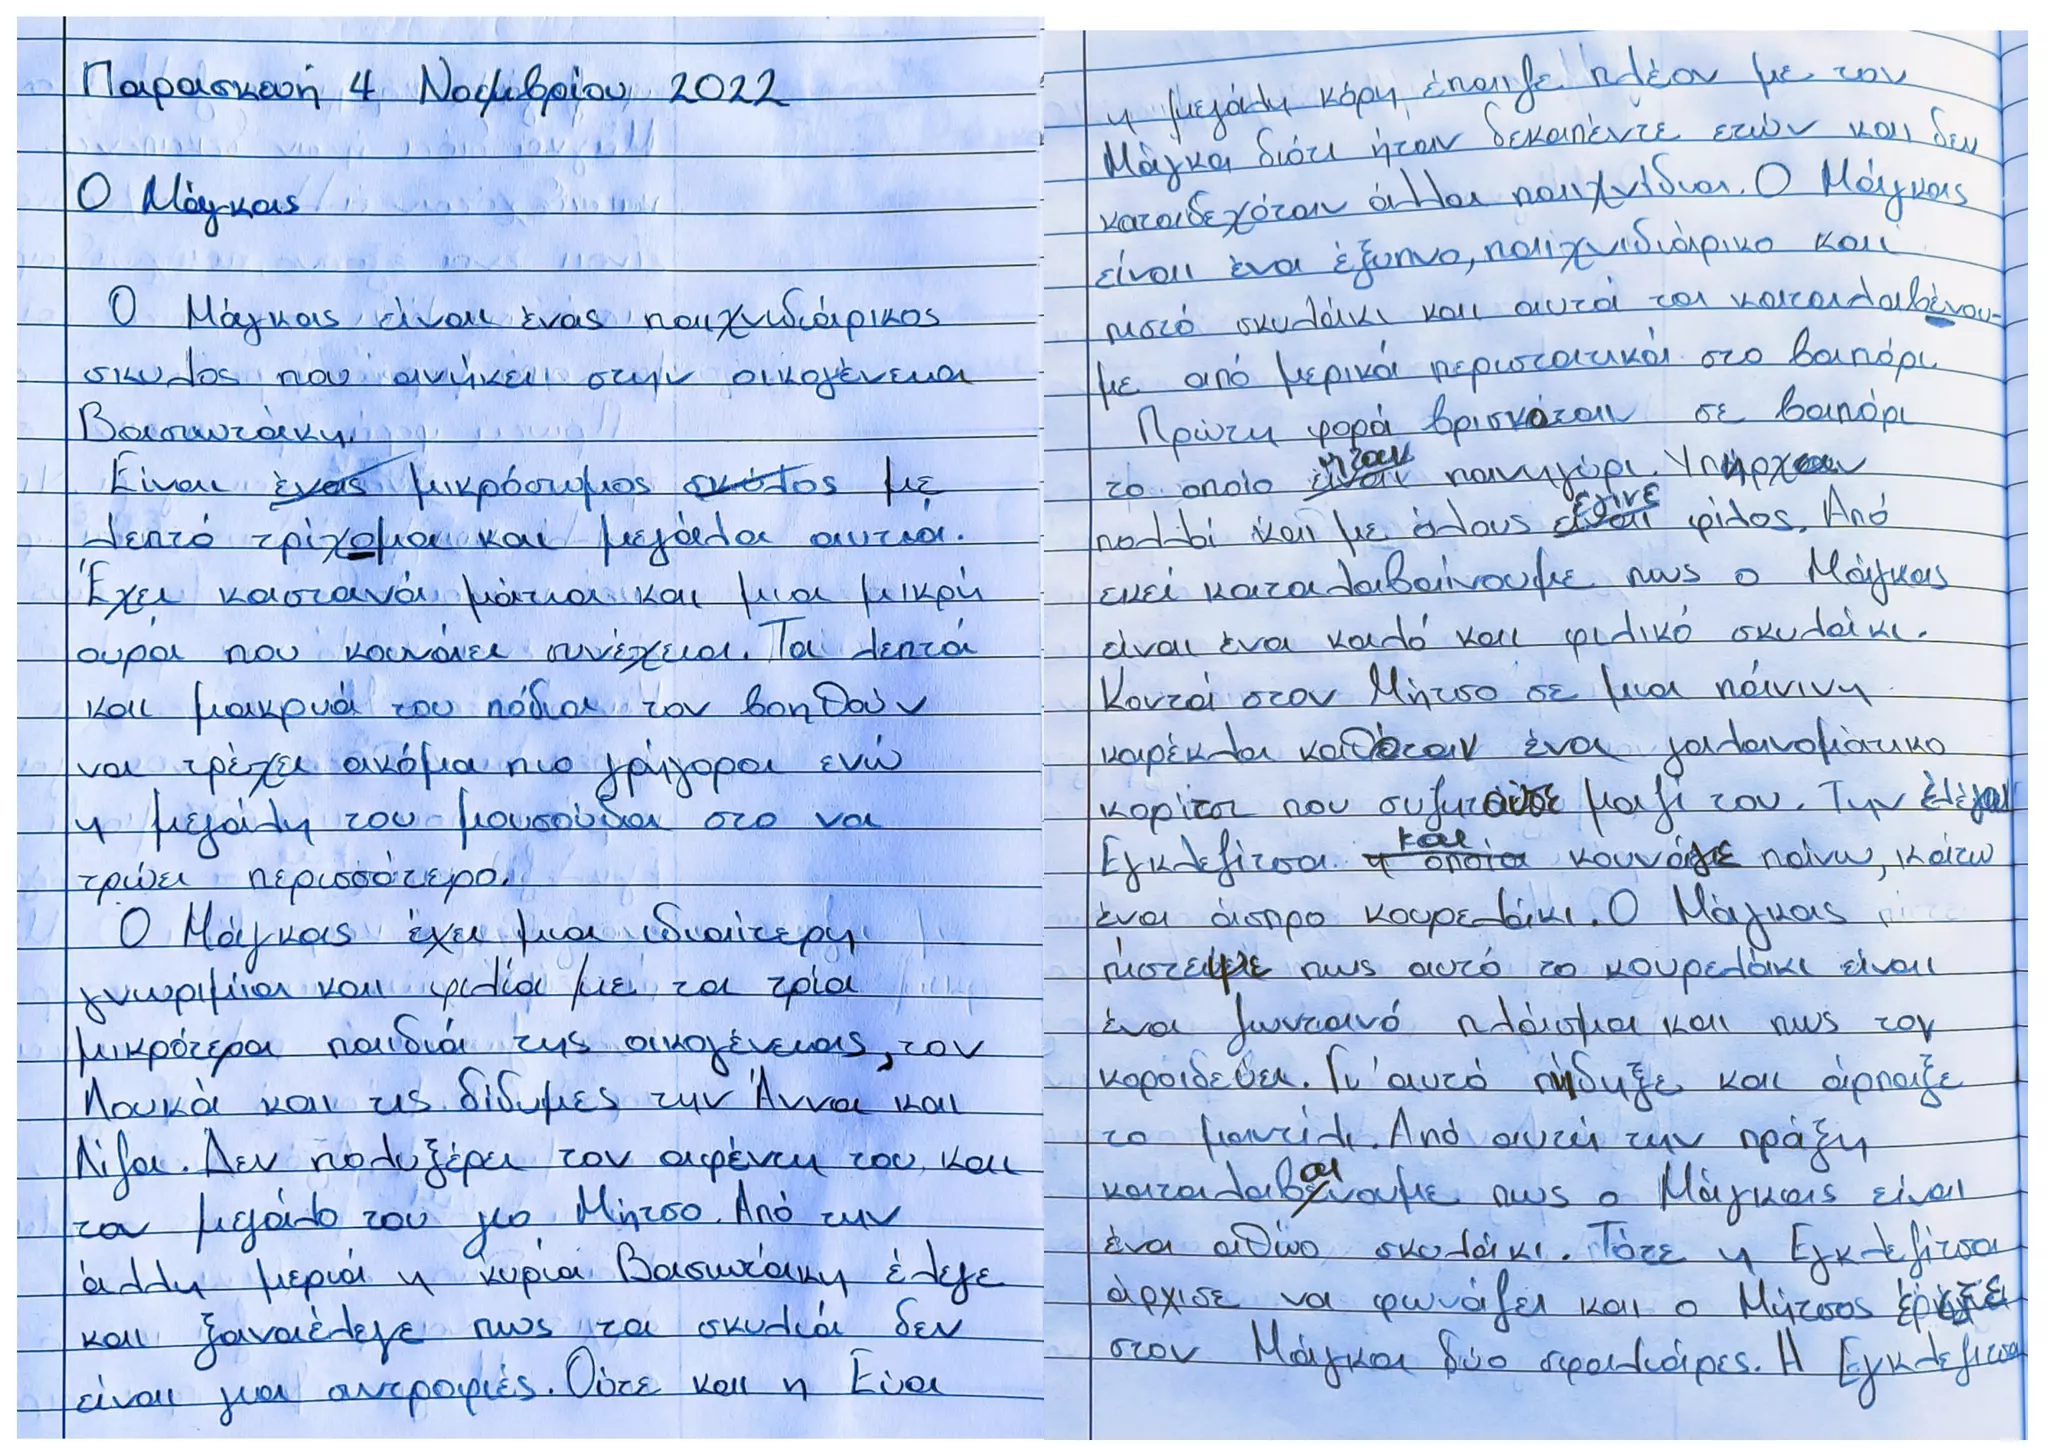 Παρασκευή 4 Νοεμβρίου 2022
Ο Μάγκας
Ο Μάγκας είναι ένας παιχνιδιάρικος
σκύλος που ανήκει στην οικογένεια
Βασιωτάκη.
Είναι ένας μικρόσωμος σκύλος με
λεπτό τρίχομα και μεγάλα αυτιά.
Έχει καστανά μάτια και μια μικρή
ουρά που κουνάει συνέχεια. Τα λεπτά
και μακρυά του πόδια τον βοηθούν
να τρέχει ακόμα πιο γρήγορα ενώ
η μεγάλη του μουσούδα στο να
τρώει περισσότερο.
Ο Μάγκας έχει μια ιδιαίτερη
γνωριμία και φιλία με τα τρία
μικρότερα παιδιά της οικογένειας, τον
Λουκά και τις δίδυμες την Άννα και
Λίζα. Δεν πολυξέρει τον αφέντη του και
τον μεγάλο του γιο Μήτσο. Από την
άλλη μεριά η κυρία Βασιωτάκη έλεγε
και ξαναέλεγε πως τα σκυλιά δεν
είναι για αντροφιές. Ούτε και η Εύα
η μεγάλη κόρη έπαιζε πλέον με τον
Μάγκα διότι ήταν δεκαπέντε ετών και δεν
καταδεχόταν άλλα παιχνίδια. Ο Μάγκας
είναι ένα έξυπνο, παιχνιδιάρικο και
πιστό σκυλάκι και αυτά τα καταλαβένου-
με από μερικά περιστατικά στο βαπόρι
Πρώτη φορά βρισκόταν σε βαπόρι
το οποίο είναι ήταν πανηγύρι. Υπήρχαν
πολλοί και με όλους είναι έγινε φίλος. Από
εκεί καταλαβαίνουμε πως ο Μάγκας
είναι ένα καλό και φιλικό σκυλάκι.
Κοντά στον Μήτσο σε μια πάνινη
καρέκλα καθόταν ένα γαλανομάτικο
κορίτσι που συζητούσε μαζί του. Την έλεγαν
Εγκλεζίτσα η οποία και κουνάγε πάνω, κάτω
ένα άσπρο κουρελάκι. Ο Μάγκας
πίστεψε πως αυτό το κουρελάκι είναι
ένα ζωντανό πλάσμα και πως τον
κοροιδεύει. Γι'αυτό πήδηξε και άρπαξε
το μαντίλι. Από αυτή την πράξη
καταλαβαίνουμε πως ο Μάγκας είναι
ένα αθώο σκυλάκι. Τότε η Εγκλεζίτσα
άρχισε να φωνάζει και ο Μήτσος έριξε
στον Μάγκα δύο σφαλιάρες. Η Εγκλεζίτσα